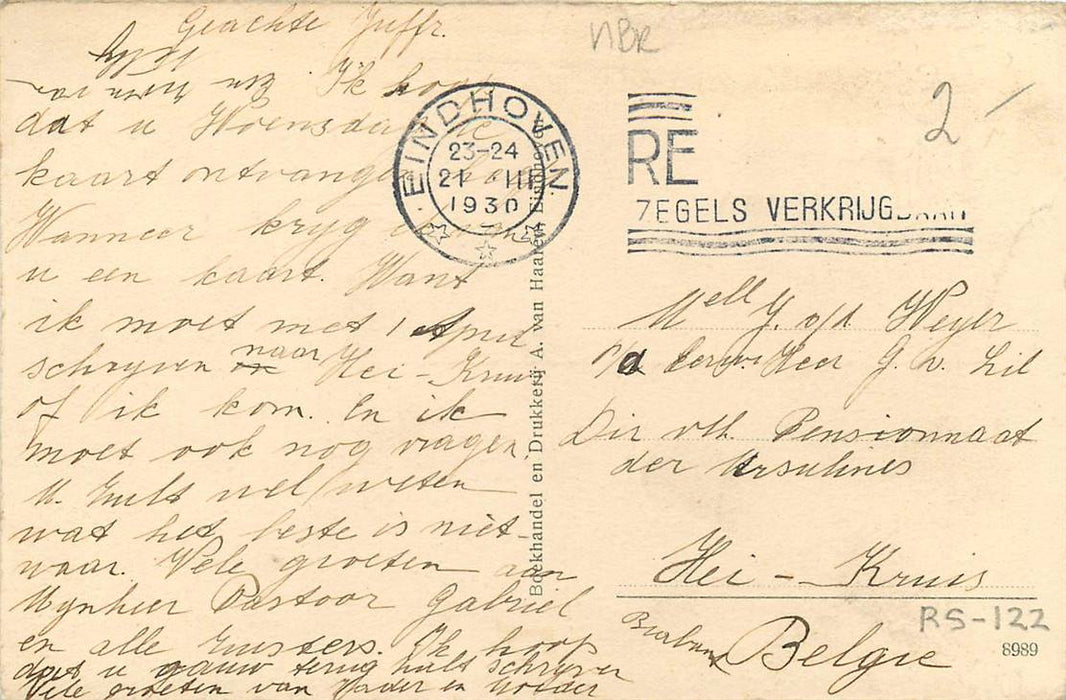 Geachte Juffr.
Ik hoop
dat u Woensdag
kaart ontvange
Wanneer kryg
u een kaart. Want
ik moet met 1 April
schryven naar Hei-Kruis
of ik kom. En ik
moet ook nog vragen.
U. Zult wel weten
wat het beste is niet-
waar. Vele groeten aan
Mynheer Pastoor Gabriel
en alle zusters. Ik hoop
dat u gauw terug zult schryven
Vele groeten van Vader en Moeder
NBR
EINDHOVEN
23-24
21 III
1930
RE
ZEGELS VERKRIJGBAAR
2
Boekhandel en Drukkerij A. van Haaren
Mell J. v/d Weyer
Eerw. Heer G. v. Lil
Dir v/h. Pensionnaat
der Ursulines
Hei - Kruis
Brabant België
RS-122
8989